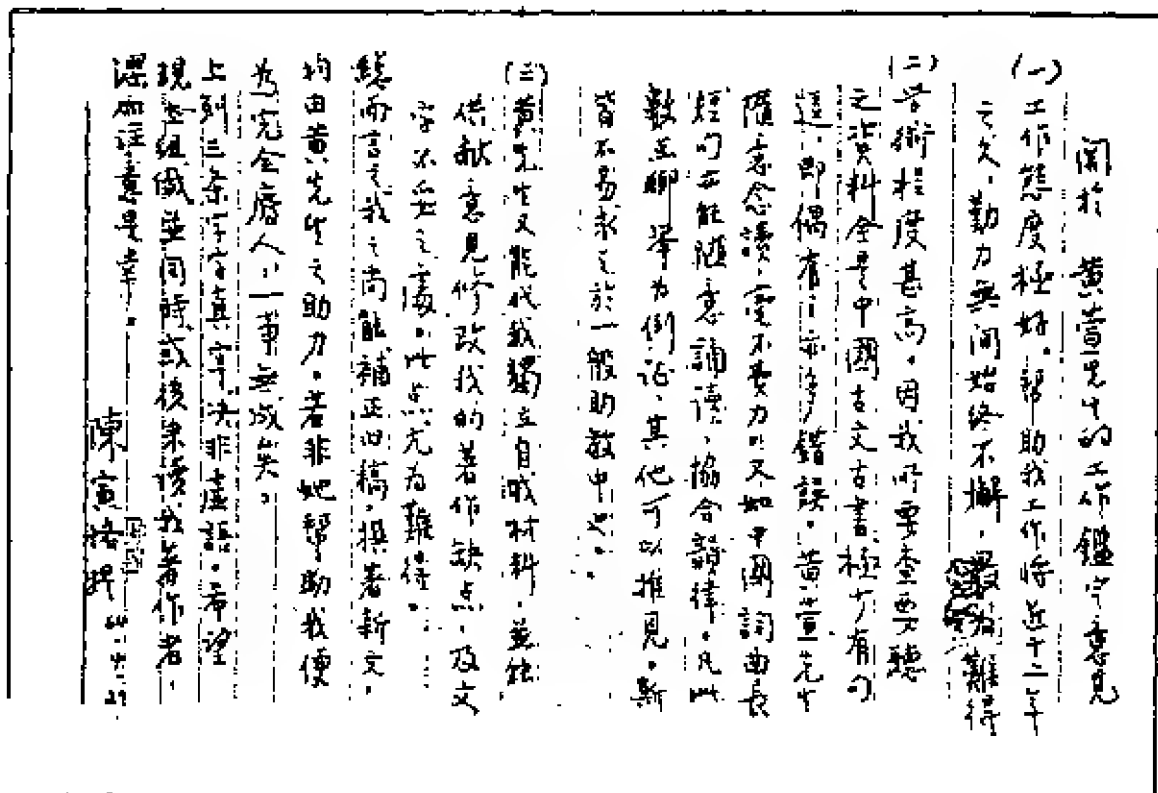 關於 黃萱先生的工作鑑定意見
(一)工作態度極好。帮助我工作將近十二年
之久,勤力無間始終不懈,最為難得
(二)学術程度甚高。因我所要查要聽
之資料全是中國古文古書極少有句
逗,即偶有之亦多錯誤。黃萱先生
隨意念讀,毫不費力。又如中國詞曲長
短句亦能隨意誦讀,協合韻律。凡此
數点聊舉为例证,其他可以推見。斯
皆不易求之於一般助教中也。
(三)黃先生又能代我獨立自找材料,並能
供献意見修改我的著作缺点,及文
字不妥之處。此点尤为難得。
總而言之我之尚能補正旧稿,撰著新文,
均由黃先生之助力。若非她帮助我便
为完全廢人,一事無成矣。
上列三条字字真实,决非虚語。希望
現在組織並同時或後来讀我著作者,
深加注意是幸。
陳寅恪 64.4.29